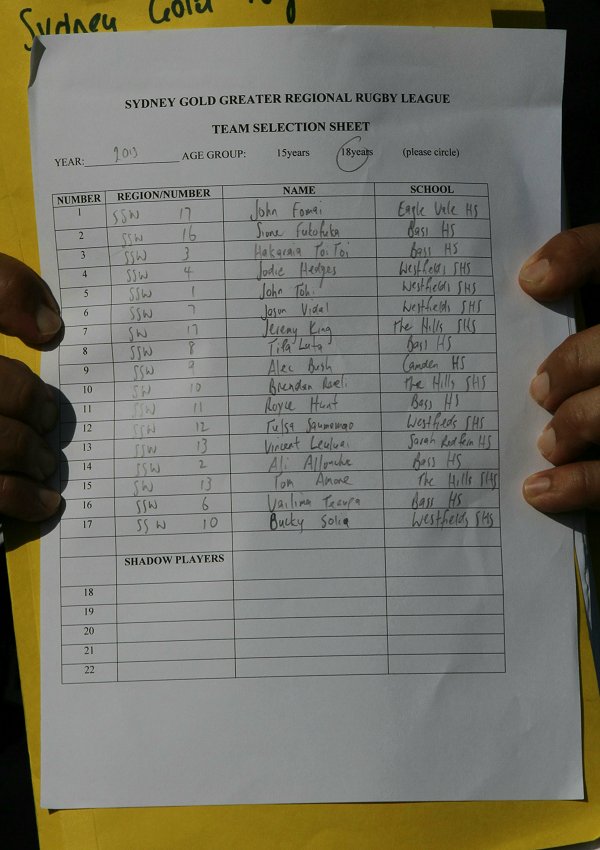 Sydney Gold
SYDNEY GOLD GREATER REGIONAL RUGBY LEAGUE
TEAM SELECTION SHEET
YEAR: 2013 AGE GROUP: 15years 18years (please circle)
NUMBER REGION/NUMBER NAME SCHOOL
1 SSW 17 John Fomai Eagle Vale HS
2 SSW 16 Sione Fukofuka Bass HS
3 SSW 3 Hakaraia Toi Toi Bass HS
4 SSW 4 Jodie Hedges Westfields SHS
5 SSW 1 John Tohi Westfields SHS
6 SSW 7 Jason Vidal Westfields SHS
7 SW 17 Jeremy King The Hills SHS
8 SSW 8 Tila Lata Bass HS
9 SSW 9 Alec Bush Camden HS
10 SW 10 Brendan The Hills SHS
11 SSW 11 Royce Hunt Bass HS
12 SSW 12 Tulsa Westfields SHS
13 SSW 13 Vincent Leuluai Sarah Redfern HS
14 SSW 2 Ali Allouche Bass HS
15 SW 13 Tom Amone The Hills SHS
16 SSW 6 Vailima Bass HS
17 SSW 10 Bucky Solia Westfields SHS
SHADOW PLAYERS
18
19
20
21
22